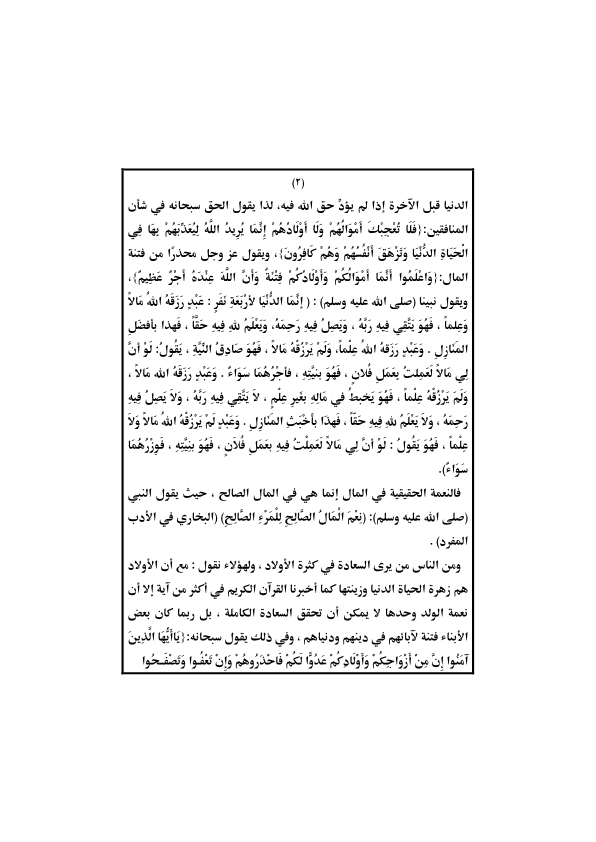 (٢)
الدنيا قبل الآخرة إذا لم يؤدَّ حق الله فيه، لذا يقول الحق سبحانه في شأن
المنافقين:{فَلَا تُعْجِبْكَ أَمْوَالُهُمْ وَلَا أَوْلَادُهُمْ إِنَّمَا يُرِيدُ اللَّهُ لِيُعَذِّبَهُمْ بِهَا فِي
الْحَيَاةِ الدُّنْيَا وَتَزْهَقَ أَنْفُسُهُمْ وَهُمْ كَافِرُونَ}، ويقول عز وجل محذرًا من فتنة
المال:{وَاعْلَمُوا أَنَّمَا أَمْوَالُكُمْ وَأَوْلَادُكُمْ فِتْنَةٌ وَأَنَّ اللَّهَ عِنْدَهُ أَجْرٌ عَظِيمٌ}،
ويقول نبينا (صلى الله عليه وسلم) : ( إِنَّمَا الدُّنْيَا لأَرْبَعَةِ نَفَرٍ : عَبْدٍ رَزَقَهُ اللهُ مَالاً
وَعِلْماً ، فَهُوَ يَتَّقِي فِيهِ رَبَّهُ ، وَيَصِلُ فِيهِ رَحِمَهُ، وَيَعْلَمُ للهِ فِيهِ حَقَّاً ، فَهذا بأفضَلِ
المَنَازِلِ . وَعَبْدٍ رَزَقهُ اللهُ عِلْماً، وَلَمْ يَرْزُقْهُ مَالاً ، فَهُوَ صَادِقُ النِّيَّةِ ، يَقُولُ: لَوْ أنَّ
لِي مَالاً لَعَمِلتُ بِعَمَلِ فُلانٍ ، فَهُوَ بنيَّتِهِ ، فأجْرُهُمَا سَوَاءٌ . وَعَبْدٍ رَزَقَهُ الله مَالاً ،
وَلَمَ يَرْزُقْهُ عِلْماً ، فَهُوَ يَخبطُ في مَالِهِ بغَيرِ عِلْمٍ ، لاَ يَتَّقِي فِيهِ رَبَّهُ ، وَلاَ يَصِلُ فِيهِ
رَحِمَهُ ، وَلاَ يَعْلَمُ للهِ فِيهِ حَقّاً ، فَهذَا بأَخْبَثِ المَنَازِلِ . وَعَبْدٍ لَمْ يَرْزُقْهُ اللهُ مَالاً وَلاَ
عِلْماً ، فَهُوَ يَقُولُ : لَوْ أنَّ لِي مَالاً لَعَمِلْتُ فِيهِ بعَمَلِ فُلاَنٍ ، فَهُوَ بنِيَّتِهِ ، فَوِزْرُهُمَا
سَوَاءٌ).
فالنعمة الحقيقية في المال إنما هي في المال الصالح ، حيث يقول النبي
(صلى الله عليه وسلم): (نِعْمَ الْمَالُ الصَّالِحِ لِلْمَرْءِ الصَّالِحِ) (البخاري في الأدب
المفرد) .
ومن الناس من يرى السعادة في كثرة الأولاد ، ولهؤلاء نقول : مع أن الأولاد
هم زهرة الحياة الدنيا وزينتها كما أخبرنا القرآن الكريم في أكثر من آية إلا أن
نعمة الولد وحدها لا يمكن أن تحقق السعادة الكاملة ، بل ربما كان بعض
الأبناء فتنة لآبائهم في دينهم ودنياهم ، وفي ذلك يقول سبحانه:{يَاأَيُّهَا الَّذِينَ
آمَنُوا إِنَّ مِنْ أَزْوَاجِكُمْ وَأَوْلَادِكُمْ عَدُوًّا لَكُمْ فَاحْذَرُوهُمْ وَإِنْ تَعْفُوا وَتَصْفَحُوا